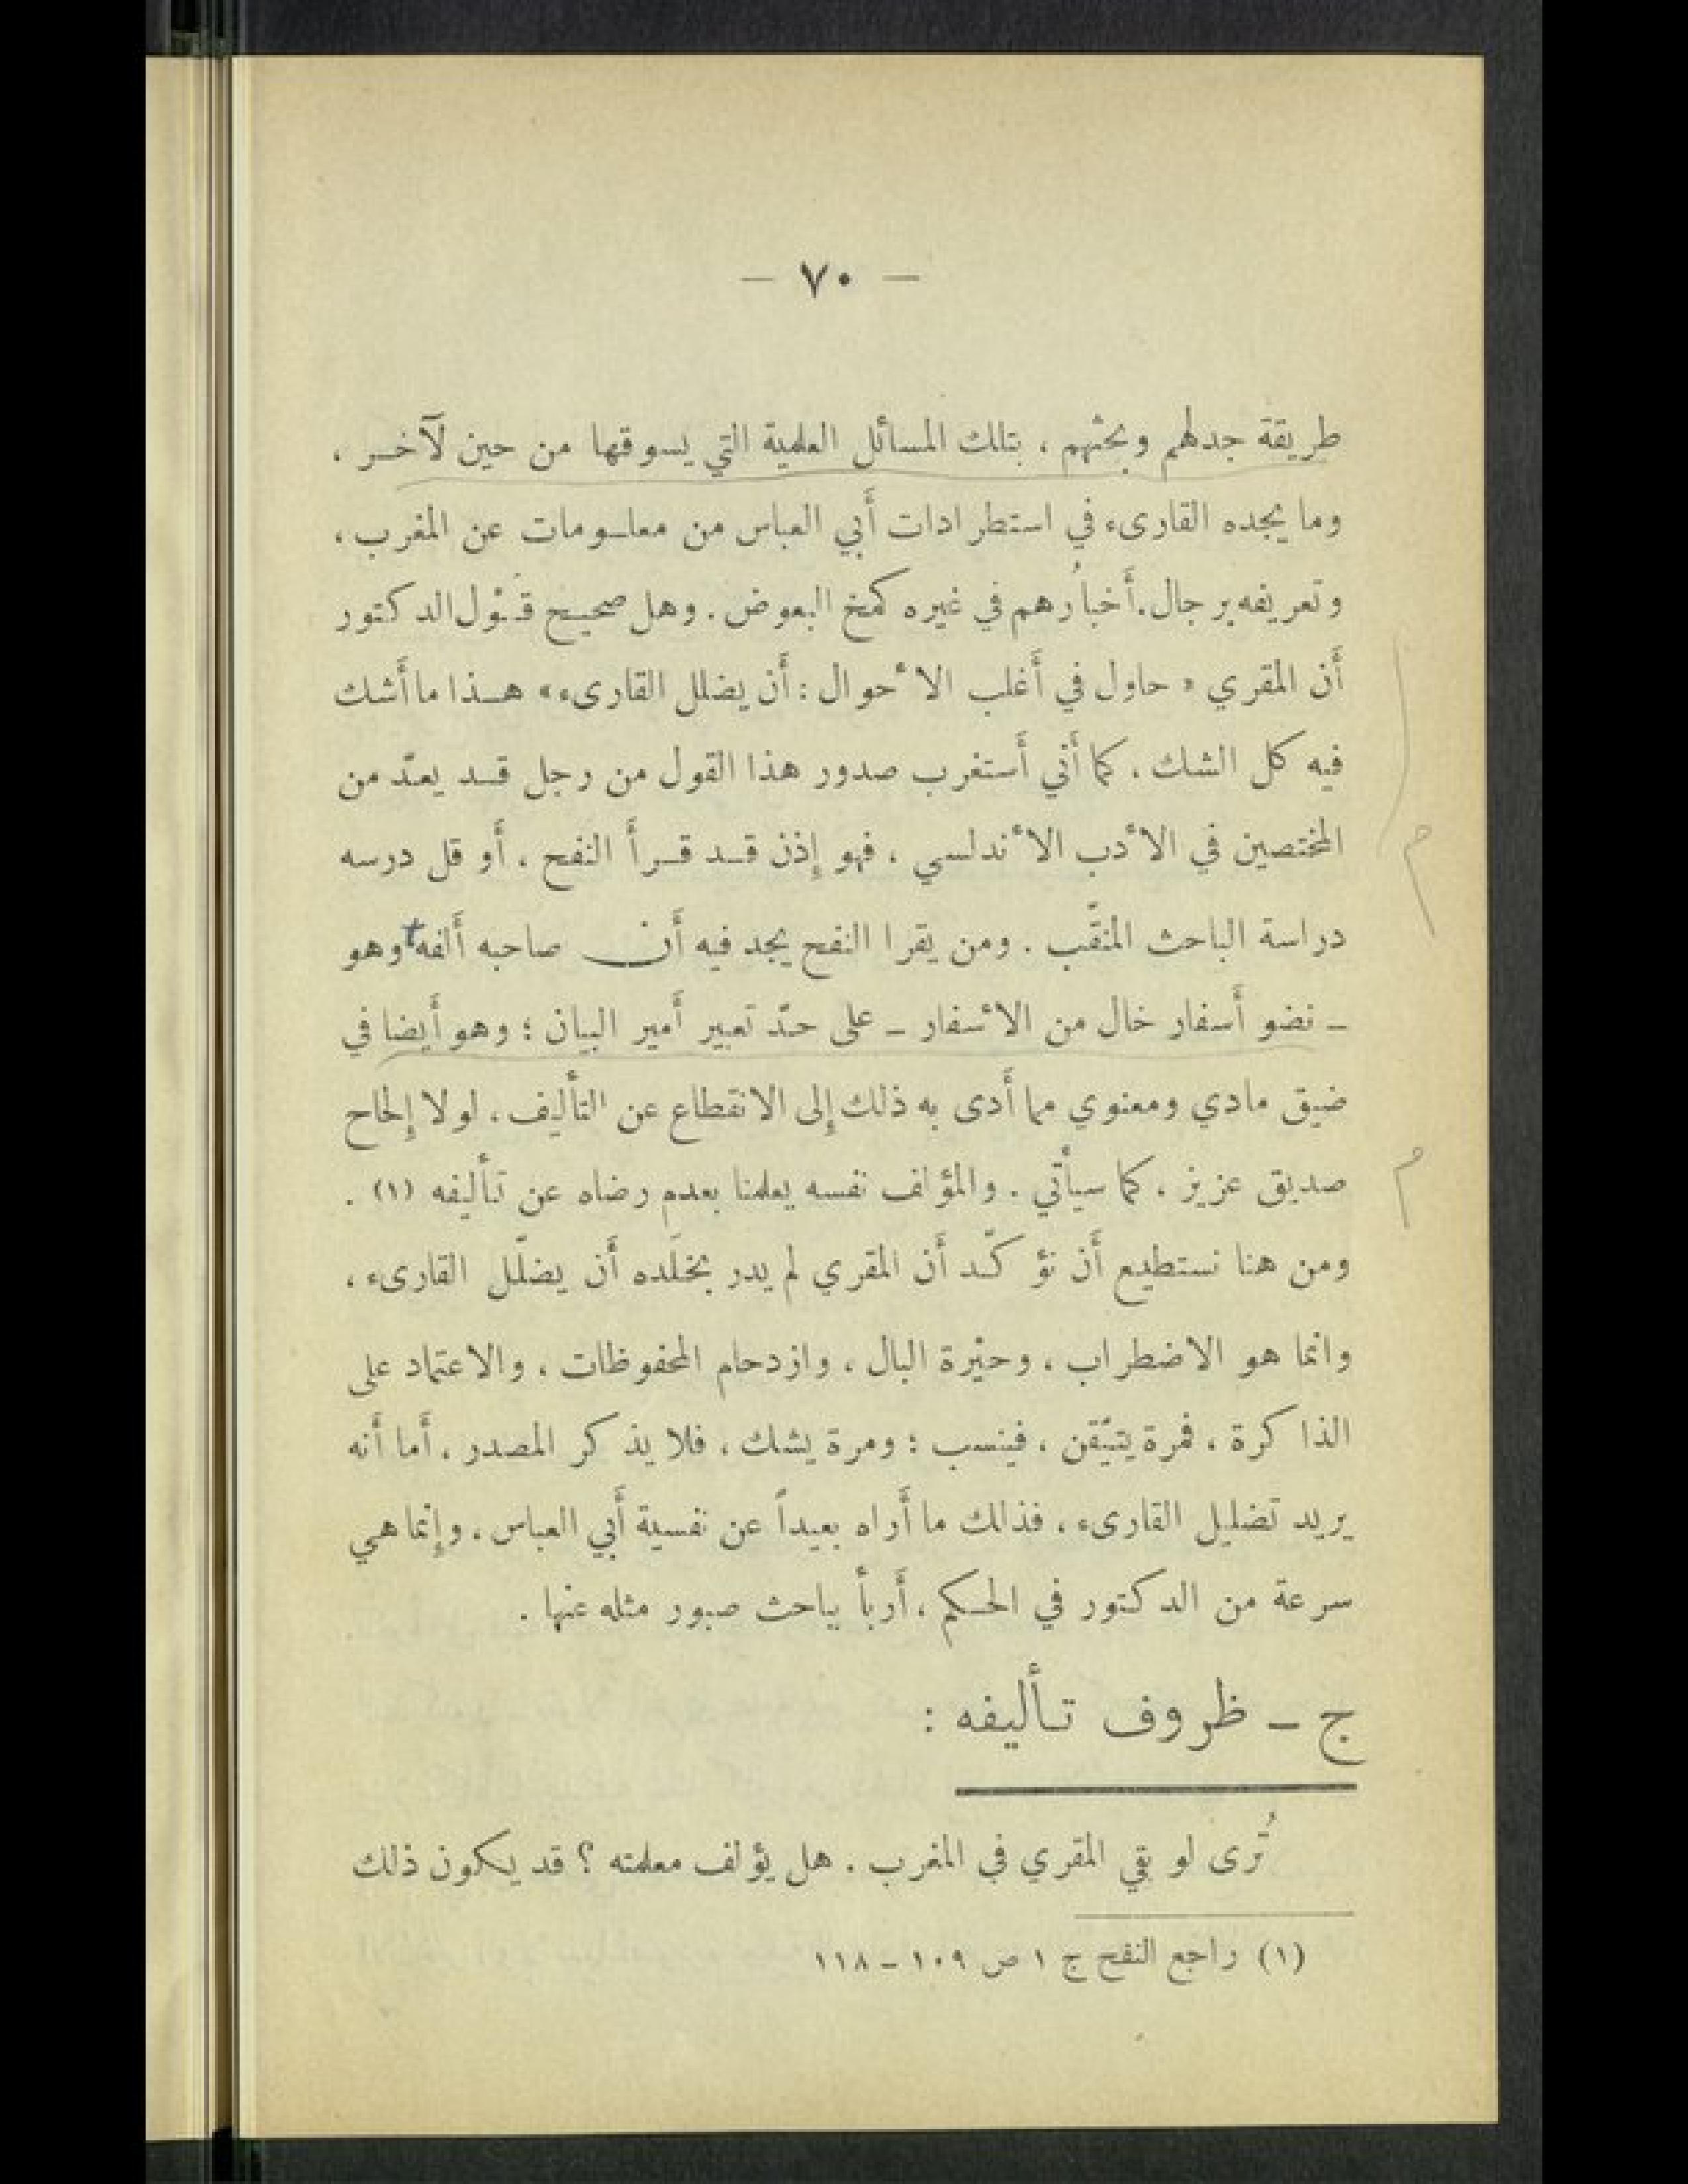 — ٧٠ —
طريقة جدلهم وبحثهم ، بتلك المسائل العلمية التي يسوقها من حين لآخر ،
وما يجده القارىء في استطرادات أبي العباس من معلومات عن المغرب ،
وتعريفه برجال. أخبارُهم في غيره كمخ البعوض . وهل صحيح قَوْل الدكتور
أن المقري « حاول في أغلب الأحوال : أن يضلل القارىء » هذا ما أشك
فيه كل الشك ، كما أني أستغرب صدور هذا القول من رجل قد يعدّ من
المختصين في الأدب الأندلسي ، فهو إذن قد قرأ النفح ، أو قل درسه
دراسة الباحث المنقّب . ومن يقرا النفح يجد فيه أن صاحبه ألفه وهو
– نضو أسفار خال من الأسفار – على حدّ تعبير أمير البيان ؛ وهو أيضا في
ضيق مادي ومعنوي مما أدى به ذلك إلى الانقطاع عن التأليف ، لولا إلحاح
صديق عزيز ، كما سيأتي . والمؤلف نفسه يعلمنا بعدم رضاه عن تأليفه (١) .
ومن هنا نستطيع أن نؤكّد أن المقري لم يدر بخلَده أن يضلّل القارىء ،
وانما هو الاضطراب ، وحيْرة البال ، وازدحام المحفوظات ، والاعتماد على
الذاكرة ، فمرة يتيّقن ، فينسب ؛ ومرة يشك ، فلا يذكر المصدر ، أما أنه
يريد تضليل القارىء ، فذلك ما أراه بعيداً عن نفسية أبي العباس ، وإنما هي
سرعة من الدكتور في الحكم ، أربأ بباحث صبور مثله عنها .
ج – ظروف تأليفه :
تُرى لو بقي المقري في المغرب . هل يؤلف معلمته ؟ قد يكون ذلك
(١) راجع النفح ج ١ ص ١٠٩ – ١١٨